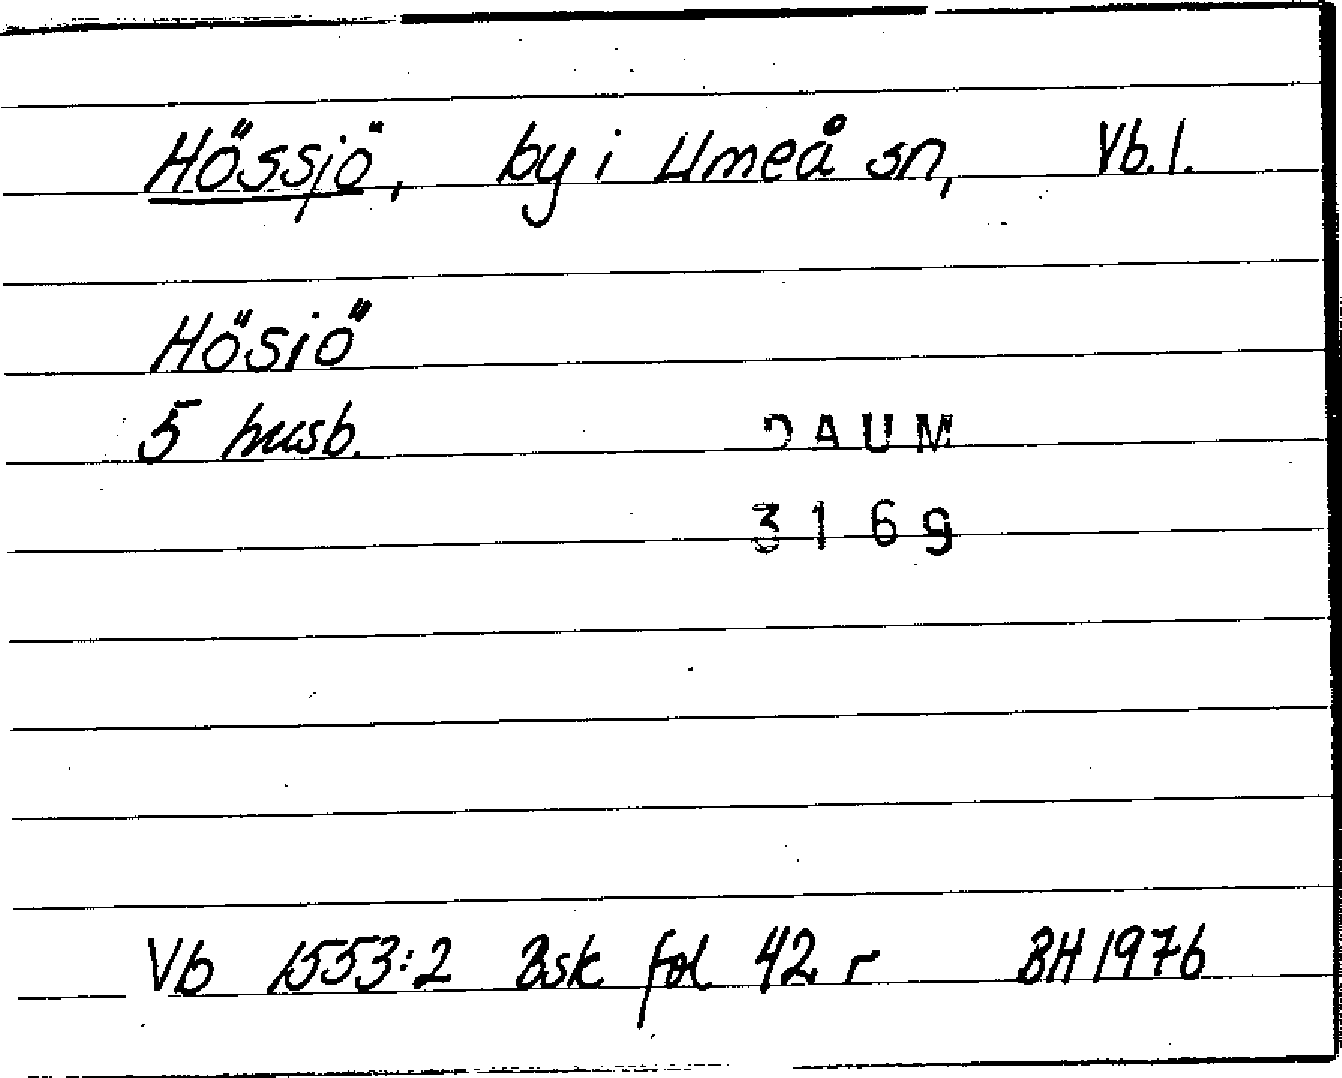 Hössjö, by i Umeå sn, Vb.l.
Hösiö
5 husb.
DAUM
3169
Vb 1553:2 Bsk fol 42 r BH 1976